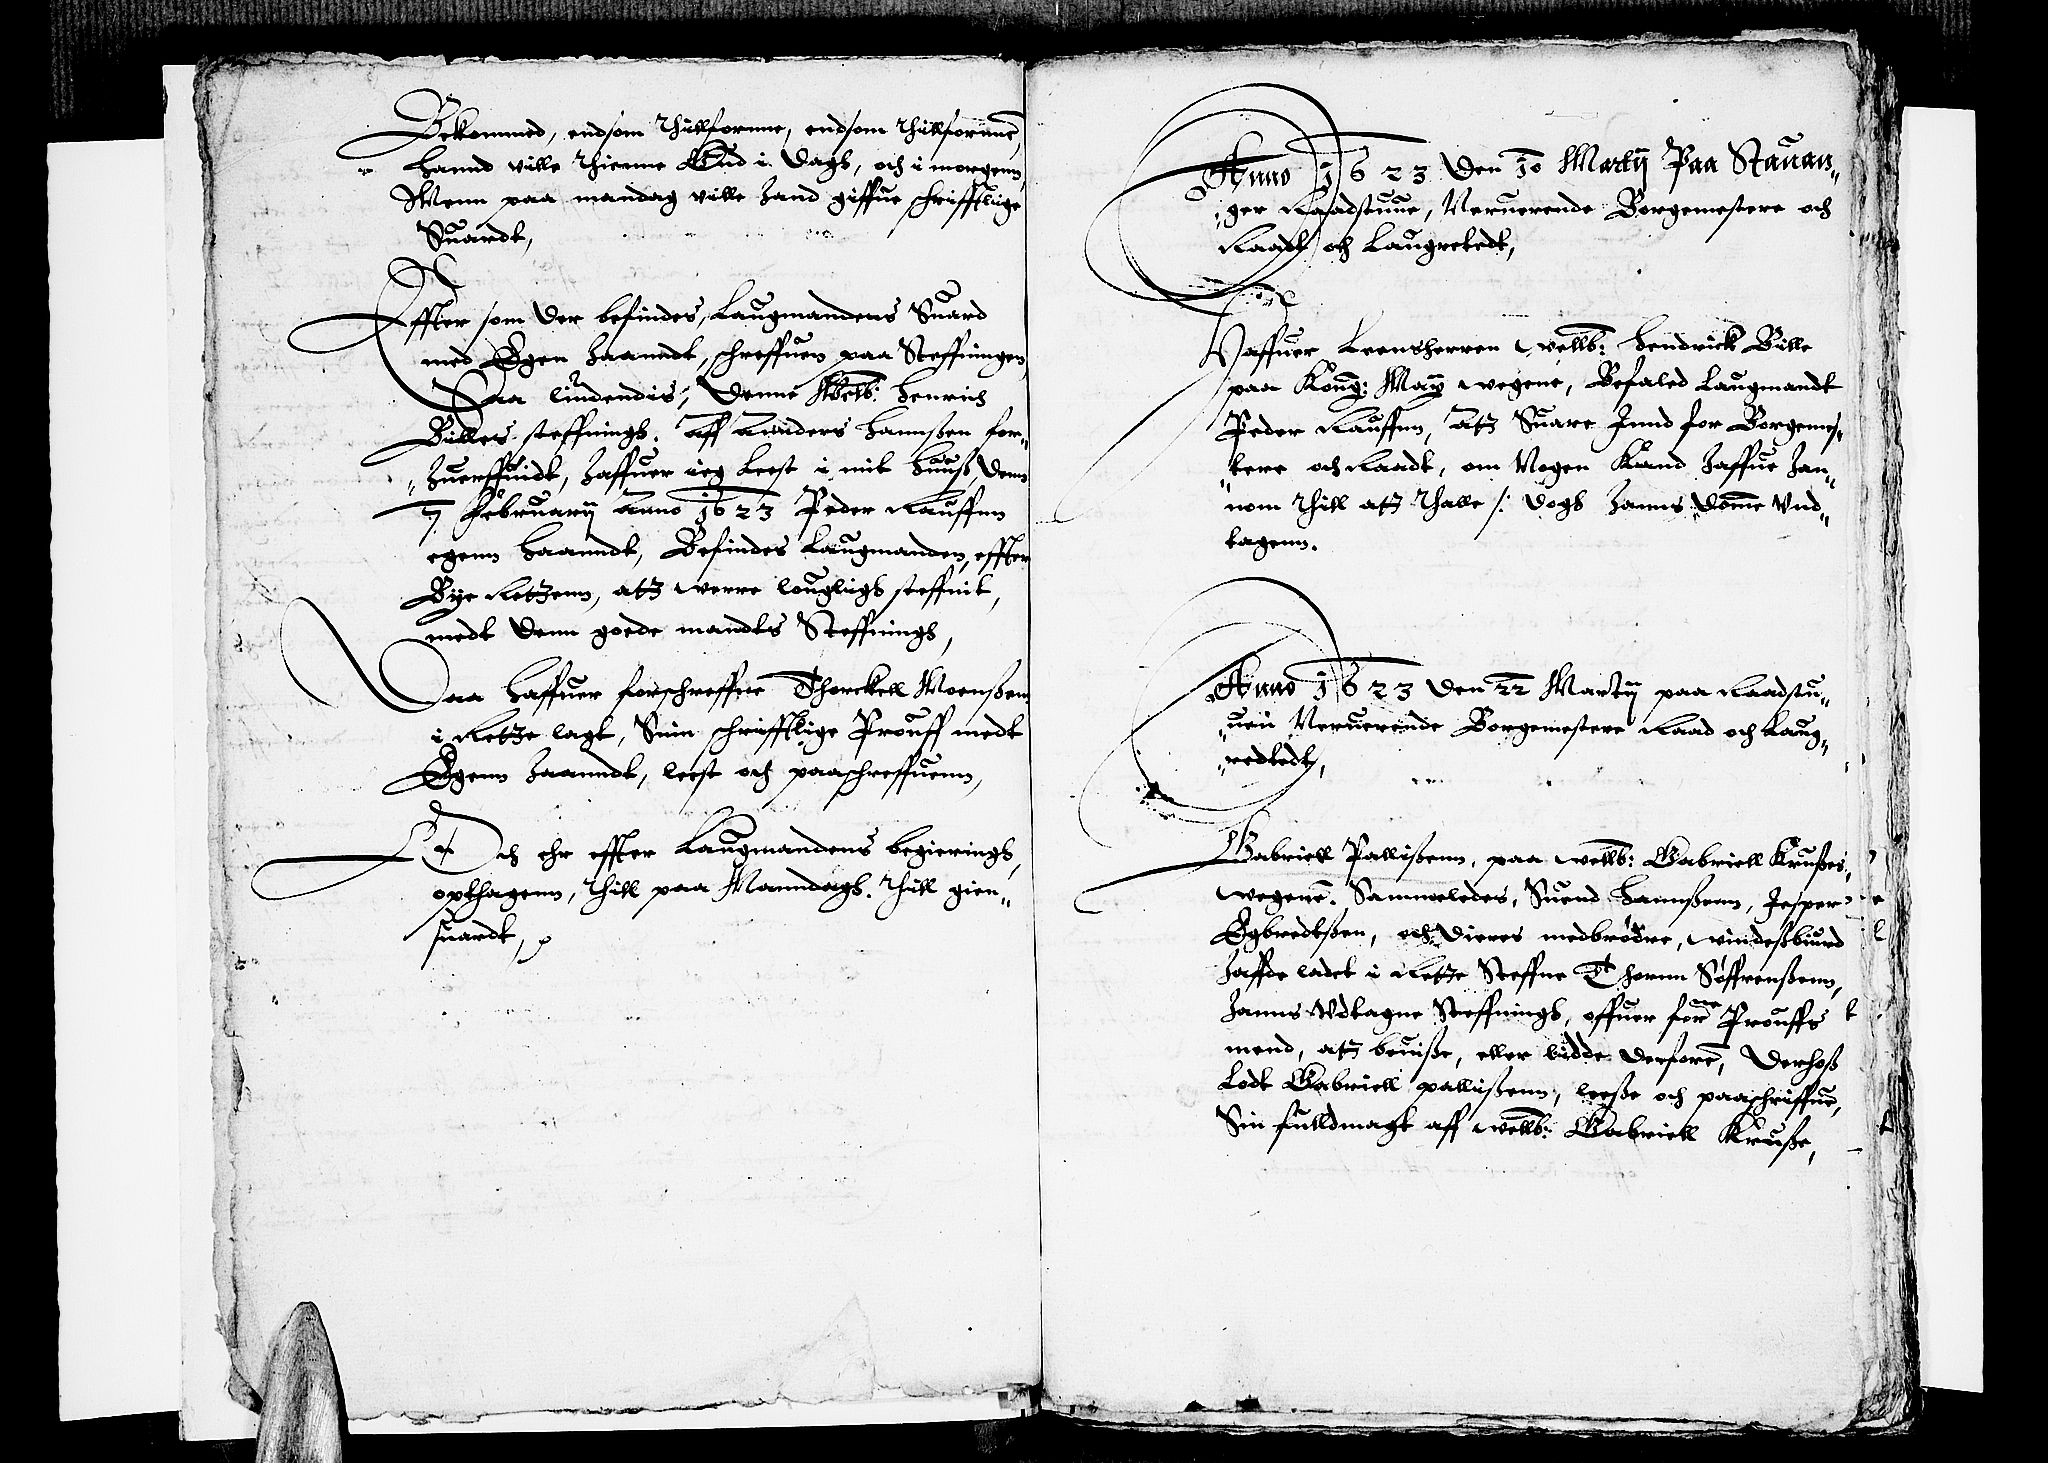 Bekommed, endsom thillfornne, endsom thillfornne,
hannd ville thienne Gud i dagh, och i morgenn,
Menn paa mandag ville hand giffue schrifftlige
Suardt,
Effter som der befindes, Laugmandens Suard
med Egen haanndt, schreffuen paa Steffningen
Saa liudendis, denne Welb: Henrich
Billes steffningh. Aff Anders Hanssen for-
huerffuidt, haffuer ieg leest i mit huuss, denn
7 february Anno 1623 Peder Kauffnn
egenn haanndt, Befindes Laugmanden, effter
Bye Retzenn, atz werre lougligh steffnit,
medt denn goede mandts Steffningh,
Saa haffuer forschreffne Thorckell Moenssenn
i Retze lagt, Sinn schrifftlige Prouff medt
Egenn haanndt, leest och paaschreffuenn,
Och ehr effter Laugmandens begieringh,
opthagenn, thill paa Manndagh. thill gien-
suardt,
Anno 1623 den 10 Martij Paa Stauan-
ger Raadstuue, Neruerende Borgemestere och
Raadt och Laugretedt,
Haffuer Leensherren Wellb: Hendrick Bille
paa Kong: May wegene, Befaled Laugmandt
Peder Kauffnn, Atz Suare Innd for Borgemes-
tere och Raadt, om Nogen Kand haffue han-
nom thill atz thalle /: dogh hanns domme Und-
tagenn.
Anno 1623 den 22 Martij paa Raadstu-
uen Neruerende Borgemestere Raad och Laug-
redtedt,
Gabriell Pallissenn, paa wellb: Gabriell Krusses
wegene. Sammeledes, Suend Hanssenn, Jesper
Egbredtssen, och dieres medbrødre, vindessbiurd
haffde ladet i Retze Steffne Thornn Søffrenssenn,
hanns Udtagne Steffningh, offuer forne Prouffs
mend, atz beuisse, eller lidde derfore, derhoss
Lodt Gabriell pallissenn, leesse och paaschriffue,
Sin fulldmagt aff wellb: Gabriell Krusse,